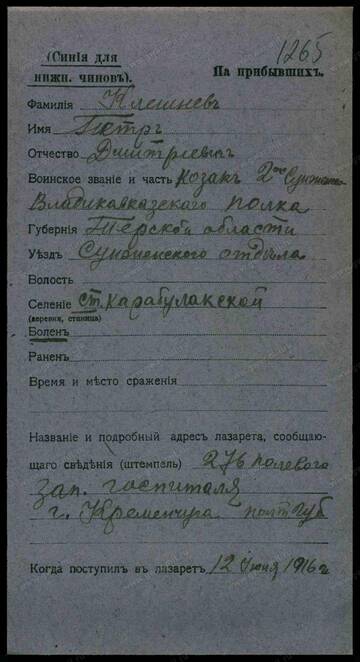 1265
(Синія для
нижн. чиновъ).
На прибывшихъ.
Фамилія Клешневъ
Имя Петръ
Отчество Дмитріевичъ
Воинское званіе и часть козакъ 2ое
Владикавказскаго полка
Губернія Терской области
Уѣздъ Сунженскаго отдѣла
Волость
Селеніе ст. Карабулакской
(деревня, станица)
Боленъ
Раненъ
Время и мѣсто сраженія
Названіе и подробный адресъ лазарета, сообщаю-
щаго свѣдѣнія (штемпель) 276 полевого
зап. госпиталя
г. Кременчуга Полт губ
Когда поступилъ въ лазаретъ 12 Іюня 1916 г